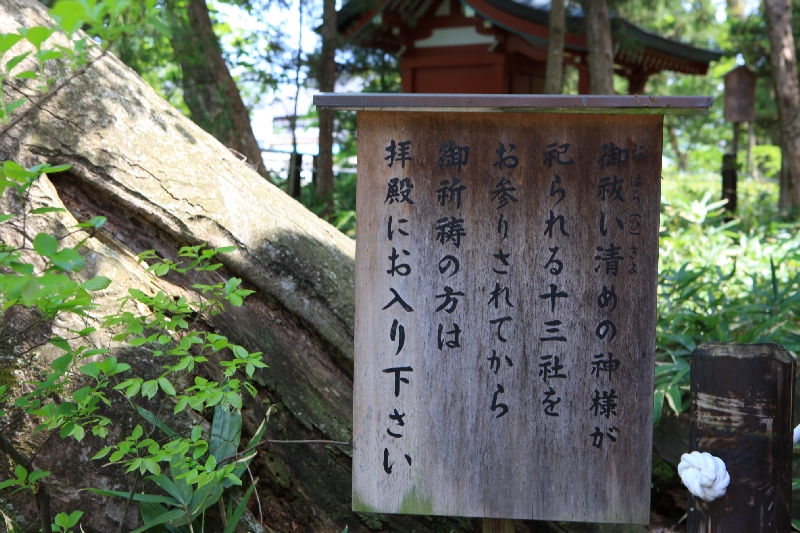 御祓い清めの神様が
祀られる十三社を
お参りされてから
御祈祷の方は
拝殿にお入り下さい